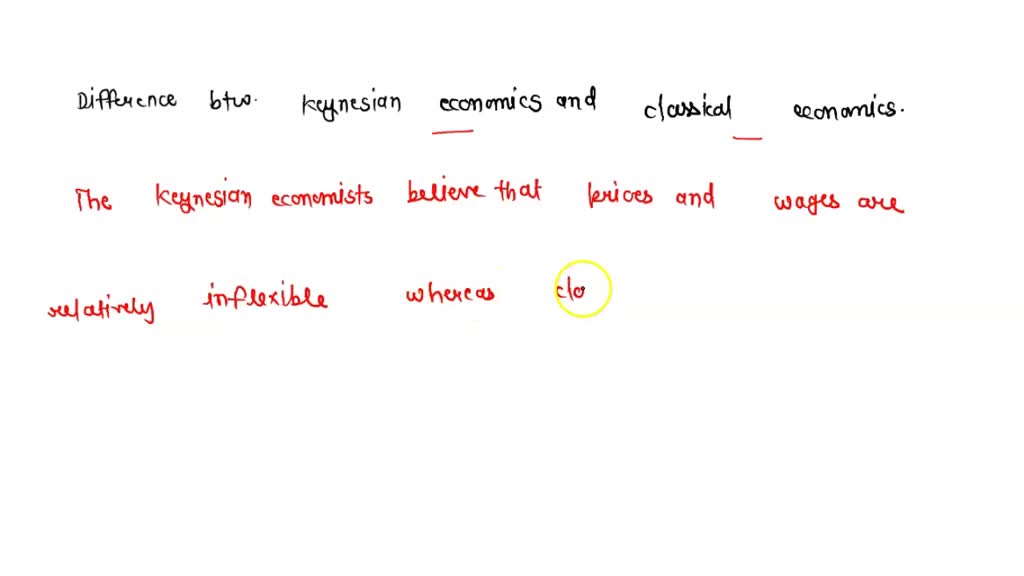 Difference btw. Keynesian economics and classical economics.
The Keynesian economists believe that prices and wages are
relatively inflexible whereas cla